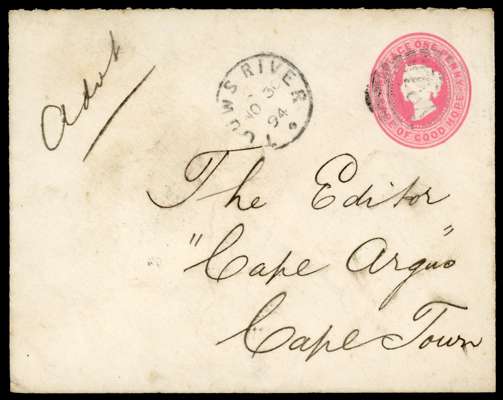 Advt
TOUWS RIVER
NO 3
94
POSTAGE ONE PENNY
CAPE OF GOOD HOPE
The Editor
"Cape Argus"
Cape Town